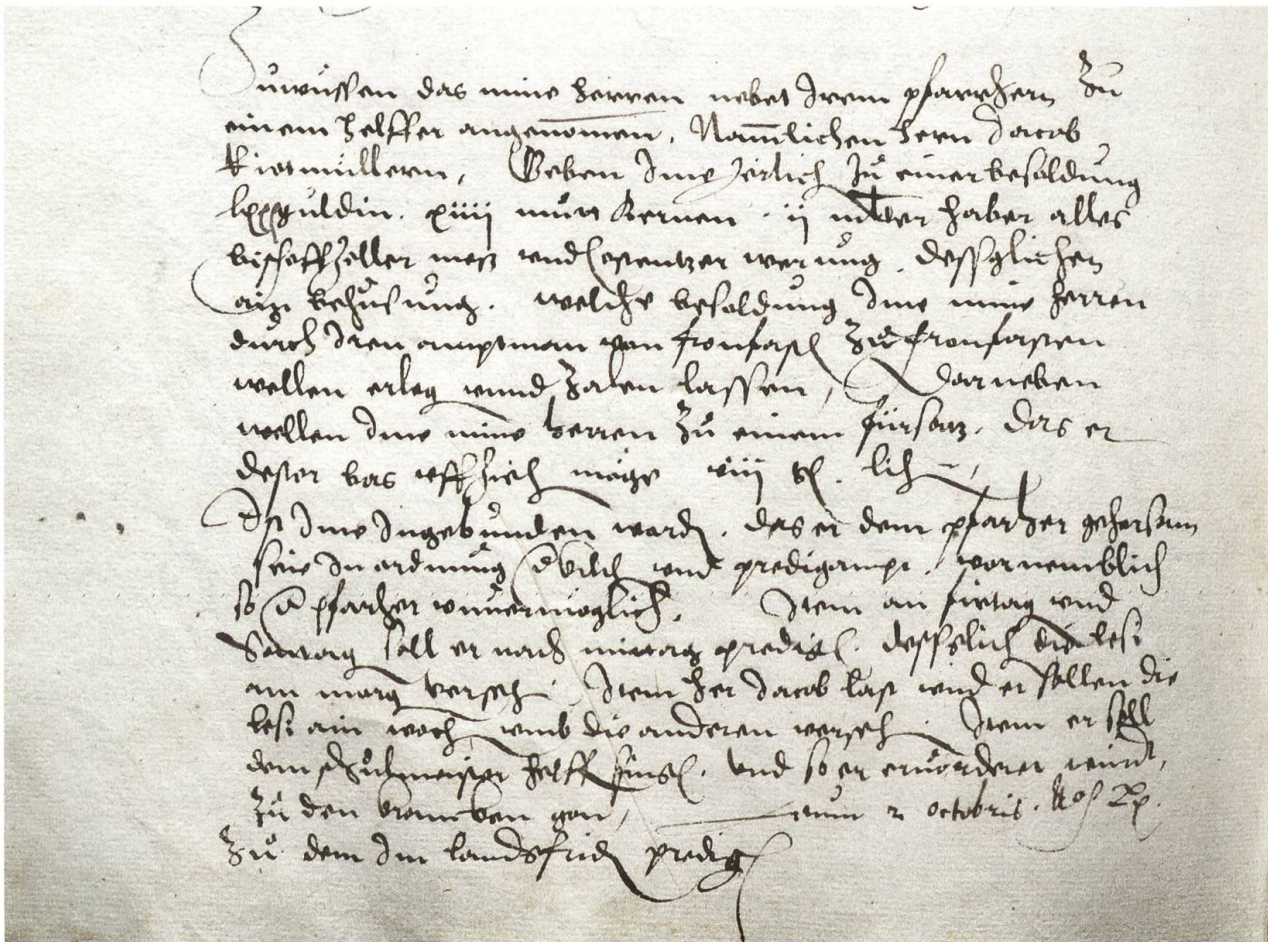 Zuwüssen das mine herren nebet Irem pfarrhern zu
einem helffer angenomen, Namlichen hern Jacob
Riotmüllern, Geben Ime Jerlich zu einer besoldung
lxxx guldin. xiiij mütt kernen. ij malter haber alles
bischoffzeller mess und Costentzer werung. dessglichen
ein behusung. welche besoldung Ime mine herren
durch Iren amptman von fronfasten zu fronfasten
wellen erleg unnd zalen lassen, Darneben
wellen Ime mine herren zu einem fürsatz. das er
dester bas uffzieh möge viij gl. lich
Ist Ime Ingebunden word. das er dem pfarher gehorsam
seie In ordnung d kilch und predigampt. vornemblich
so d pfarher unvermöglich. Item an firtag und
Sontag soll er nach mittag predig. dessglich die lesi
am morg verseh. Item her Jacob last und er sollen die
lesi ain woch umb die anderen verseh. Item er soll
dem schulmeister helff sing. und so er ervorderet wirdt,
zu den krancken gon, actum 2 octobris.
zu dem Im landsfrid predig